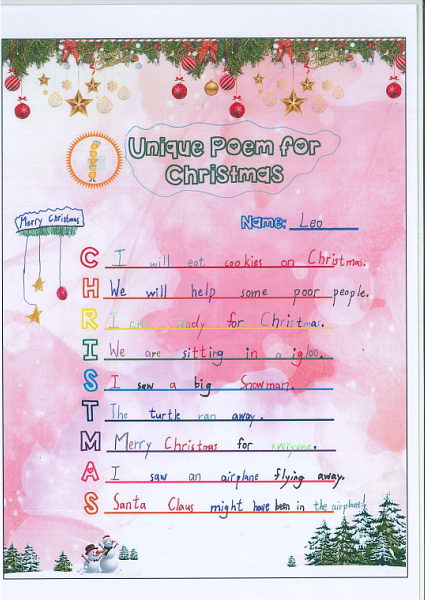 Unique Poem for
Christmas
Merry Christmas
Name: Leo
C I will eat cookies on Christmas.
H We will help some poor people.
R I am ready for Christmas.
I We are sitting in a igloo.
S I saw a big Snowman.
T The turtle ran away.
M Merry Christmas for everyone.
A I saw an airplane flying away.
S Santa Claus might have been in the airplane!